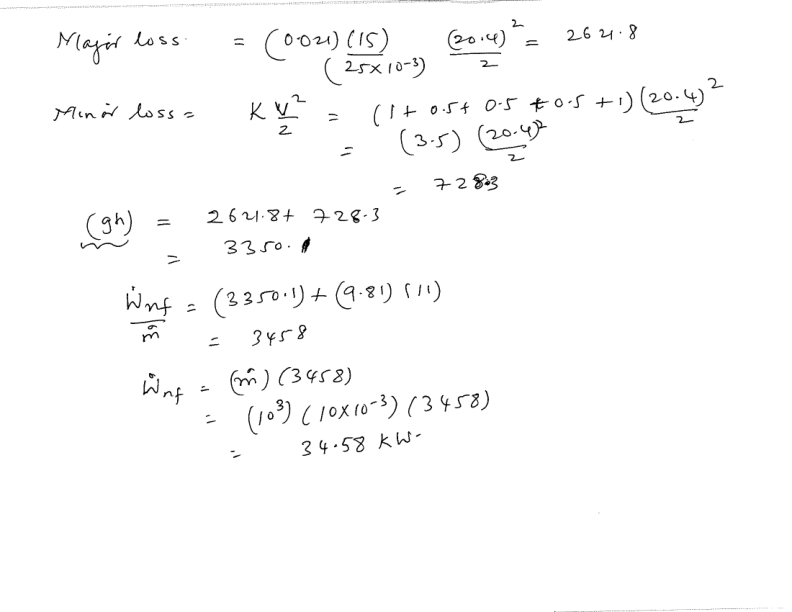 Major loss = (0.021) (15) / (25x10-3) (20.4)² / 2 = 2621.8
Minor loss = K V² / 2 = (1+ 0.5+ 0.5 + 0.5 +1) (20.4)² / 2
= (3.5) (20.4)² / 2
= 728.3
(gh) = 2621.8+ 728.3
= 3350.1
Ẇnf / ṁ = (3350.1) + (9.81) (11)
= 3458
Ẇnf = (ṁ) (3458)
= (10³) (10x10-3) (3458)
= 34.58 KW.